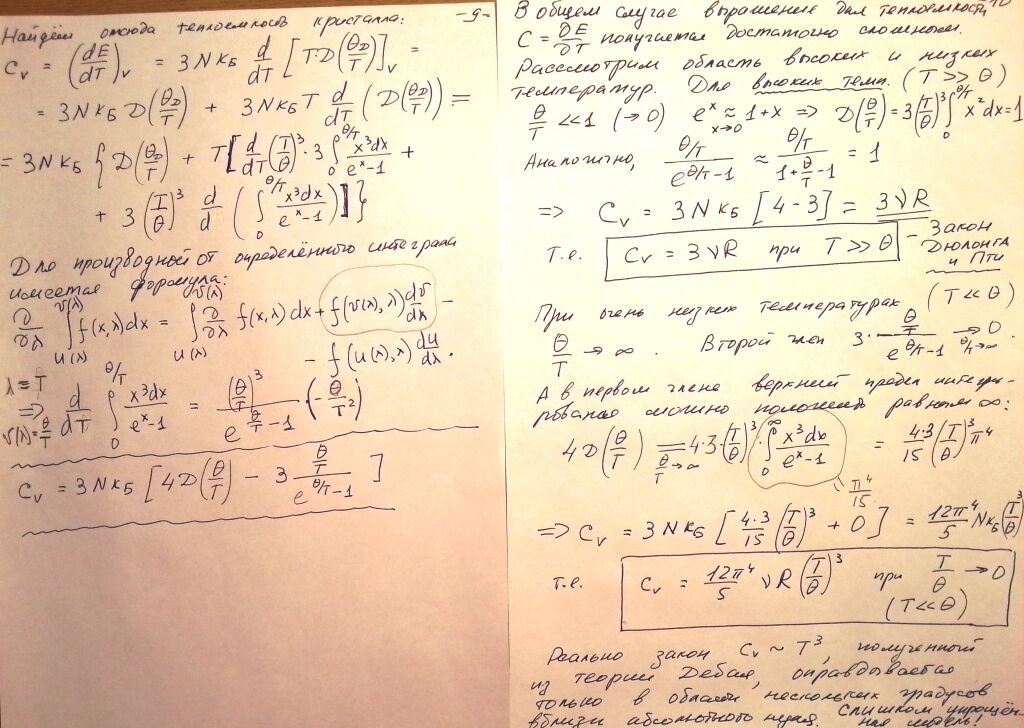 -9-
Найдём отсюда теплоемкость кристалла:
C_V = (dE/dT)_V = 3Nк_Б d/dT [T·D(θ_D/T)]_V =
= 3Nк_Б D(θ_D/T) + 3Nк_Б T d/dT (D(θ_D/T)) =
= 3Nк_Б { D(θ_D/T) + T[ d/dT (T/θ)³ · 3 ∫₀^{θ/T} x³dx/(eˣ-1) +
+ 3 (T/θ)³ d/d ( ∫₀^{θ/T} x³dx/(eˣ-1) ) ] }
Для производной от определённого интеграла
имеется формула:
∂/∂λ ∫_{u(λ)}^{v(λ)} f(x,λ)dx = ∫_{u(λ)}^{v(λ)} ∂/∂λ f(x,λ)dx + f(v(λ),λ) dv/dλ -
- f(u(λ),λ) du/dλ.
λ = T
v(λ) = θ/T
=> d/dT ∫₀^{θ/T} x³dx/(eˣ-1) = (θ/T)³/(e^{θ/T}-1) · (-θ/T²)
C_V = 3Nк_Б [4D(θ/T) - 3 (θ/T)/(e^{θ/T}-1)]
10
В общем случае выражение для теплоемкости
C = ∂E/∂T получается достаточно сложным.
Рассмотрим область высоких и низких
температур. Для высоких темп. (T >> θ)
θ/T << 1 (→0) eˣ ≈ 1+x x→0 => D(θ/T) = 3(T/θ)³ ∫₀^{θ/T} x²dx = 1
Аналогично, (θ/T)/(e^{θ/T}-1) ≈ (θ/T)/(1+θ/T-1) = 1
=> C_V = 3Nк_Б [4-3] = 3νR
т.е. C_V = 3νR при T >> θ - Закон
Дюлонга
и Пти
При очень низких температурах (T << θ)
θ/T → ∞. Второй член 3·(θ/T)/(e^{θ/T}-1) → 0 θ/T→∞
А в первом члене верхний предел интегри-
рования можно положить равным ∞:
4D(θ/T) = 4·3·(T/θ)³ · ∫₀^∞ x³dx/(eˣ-1) = 4·3/15 (T/θ)³ π⁴
θ/T→∞
π⁴/15
=> C_V = 3Nк_Б [4·3/15 (T/θ)³ + 0] = 12π⁴/5 Nк_Б (T/θ)³
т.е. C_V = 12π⁴/5 νR (T/θ)³ при T/θ → 0
(T << θ)
Реально закон C_V ~ T³, полученный
из теории Дебая, оправдывается
только в области нескольких градусов
вблизи абсолютного нуля. Слишком упрощён-
ная модель!